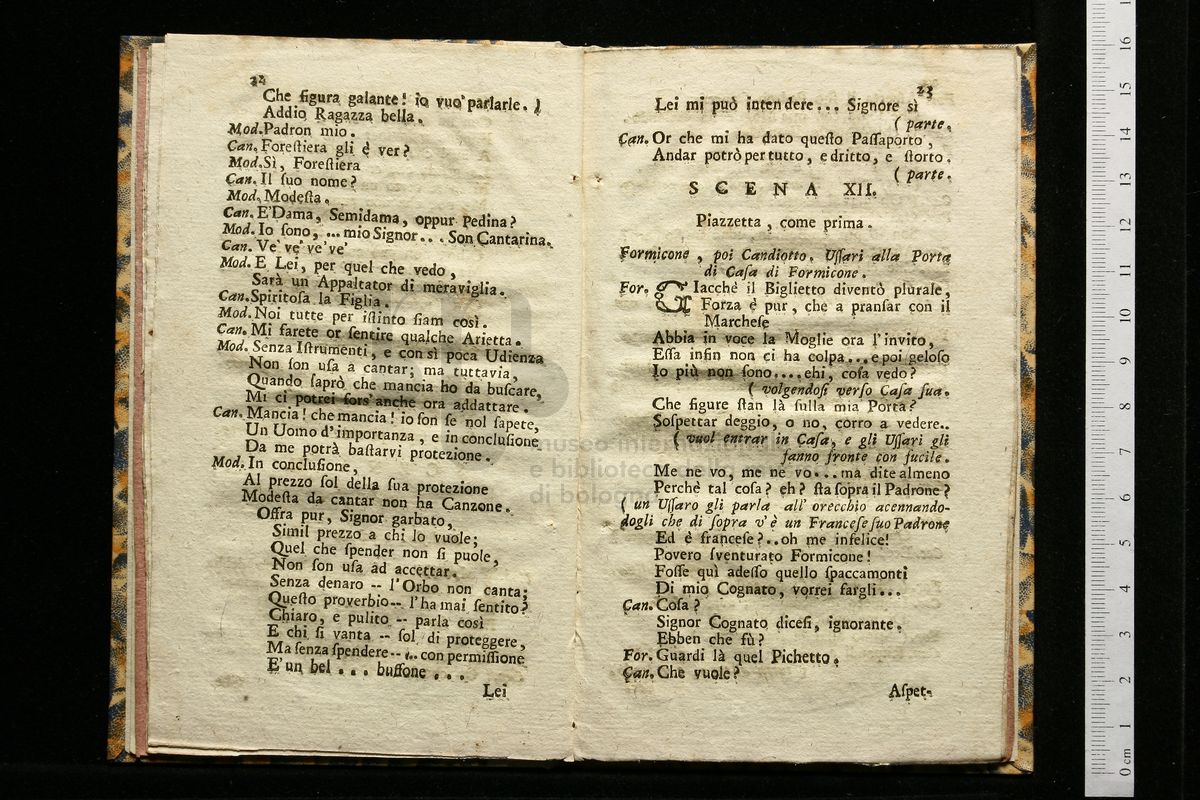 22
Che figura galante! io vuo' parlarle.
Addio Ragazza bella.
Mod. Padron mio.
Can. Foreſtiera gli è ver?
Mod. Sì, Foreſtiera
Can. Il ſuo nome?
Mod. Modeſta.
Can. E' Dama, Semidama, oppur Pedina?
Mod. Io ſono, ... mio Signor... Son Cantarina.
Can. Ve' ve' ve' ve'
Mod. E Lei, per quel che vedo,
Sarà un Appaltator di meraviglia.
Can. Spiritoſa la Figlia.
Mod. Noi tutte per iſtinto ſiam così.
Can. Mi farete or ſentire qualche Arietta.
Mod. Senza Iſtrumenti, e con sì poca Udienza
Non ſon uſa a cantar; ma tuttavia,
Quando ſaprò che mancia ho da buſcare,
Mi ci potrei forſ'anche ora addattare.
Can. Mancia! che mancia! io ſon ſe nol ſapete,
Un Uomo d'importanza, e in concluſione
Da me potrà baſtarvi protezione.
Mod. In concluſione,
Al prezzo ſol della ſua protezione
Modeſta da cantar non ha Canzone.
Offra pur, Signor garbato,
Simil prezzo a chi lo vuole;
Quel che ſpender non ſi puole,
Non ſon uſa ad accettar.
Senza denaro -- l'Orbo non canta;
Queſto proverbio -- l'ha mai ſentito?
Chiaro, e pulito -- parla così
E chi ſi vanta -- ſol di proteggere,
Ma ſenza ſpendere -- ... con permiſſione
E' un bel ... buffone ...
Lei
23
Lei mi può intendere... Signore sì
( parte.
Can. Or che mi ha dato queſto Paſſaporto,
Andar potrò per tutto, e dritto, e ſtorto.
( parte.
SCENA XII.
Piazzetta, come prima.
Formicone, poi Candiotto. Uſſari alla Porta
di Caſa di Formicone.
For. GIacchè il Biglietto diventò plurale,
Forza è pur, che a pranſar con il
Marcheſe
Abbia in voce la Moglie ora l'invito,
Eſſa infin non ci ha colpa... e poi geloſo
Io più non ſono.... ehi, coſa vedo?
( volgendoſi verſo Caſa ſua.
Che figure ſtan là ſulla mia Porta?
Soſpettar deggio, o no, corro a vedere..
( vuol entrar in Caſa, e gli Uſſari gli
fanno fronte con fucile.
Me ne vo, me ne vo... ma dite almeno
Perchè tal coſa? eh? ſta ſopra il Padrone?
( un Uſſaro gli parla all' orecchio acennando-
dogli che di ſopra v' è un Franceſe ſuo Padrone
Ed è franceſe?.. oh me infelice!
Povero ſventurato Formicone!
Foſſe quì adeſſo quello ſpaccamonti
Di mio Cognato, vorrei fargli...
Can. Coſa?
Signor Cognato diceſi, ignorante.
Ebben che fù?
For. Guardi là quel Pichetto.
Can. Che vuole?
Aſpet-
e bibliotec
di bologna
0 cm 1 2 3 4 5 6 7 8 9 10 11 12 13 14 15 16